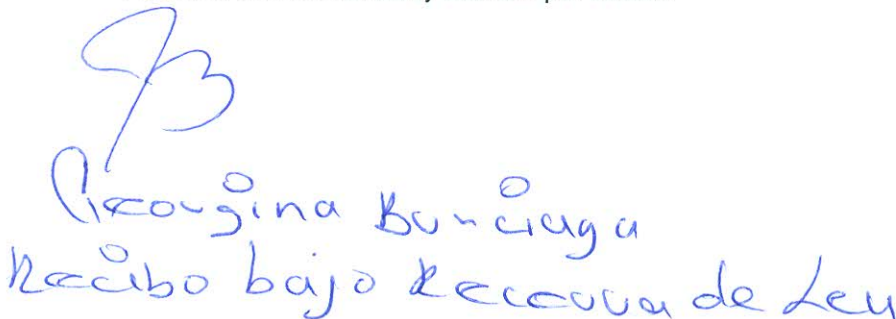 Georgina Burciaga
Recibo bajo Reserva de Ley